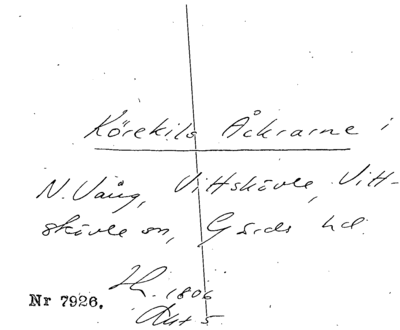 Körekils Åkrarne i
N. Vång, Vittskövle, Vitt-
skövle sn, Gärds hd.
1806
Akt 5
Nr 7926.